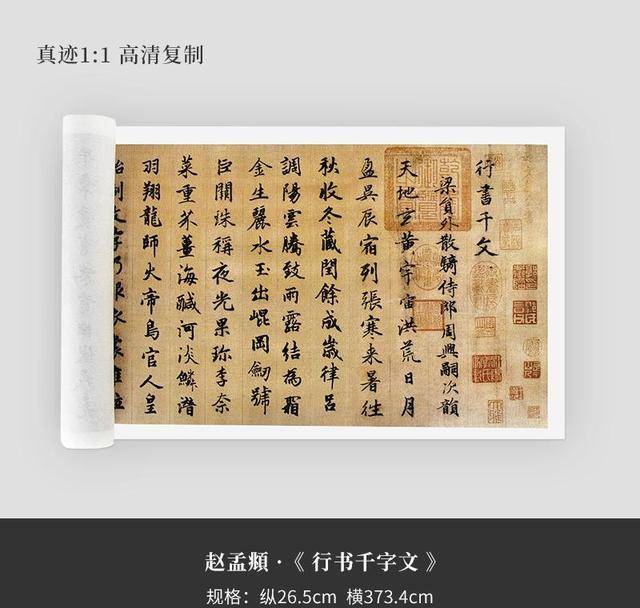 真迹1:1 高清复制
行書千文
梁員外散騎侍郎周興嗣次韻
天地玄黃宇宙洪荒日月
盈昃辰宿列張寒来暑往
秋收冬藏閏餘成歲律呂
調陽雲騰致雨露結為霜
金生麗水玉出崐岡劒號
巨闕珠稱夜光果珍李柰
菜重芥薑海鹹河淡鱗潛
羽翔龍師火帝鳥官人皇
始制文字乃服衣裳推位
赵孟頫·《 行书千字文 》
规格：纵26.5cm 横373.4cm